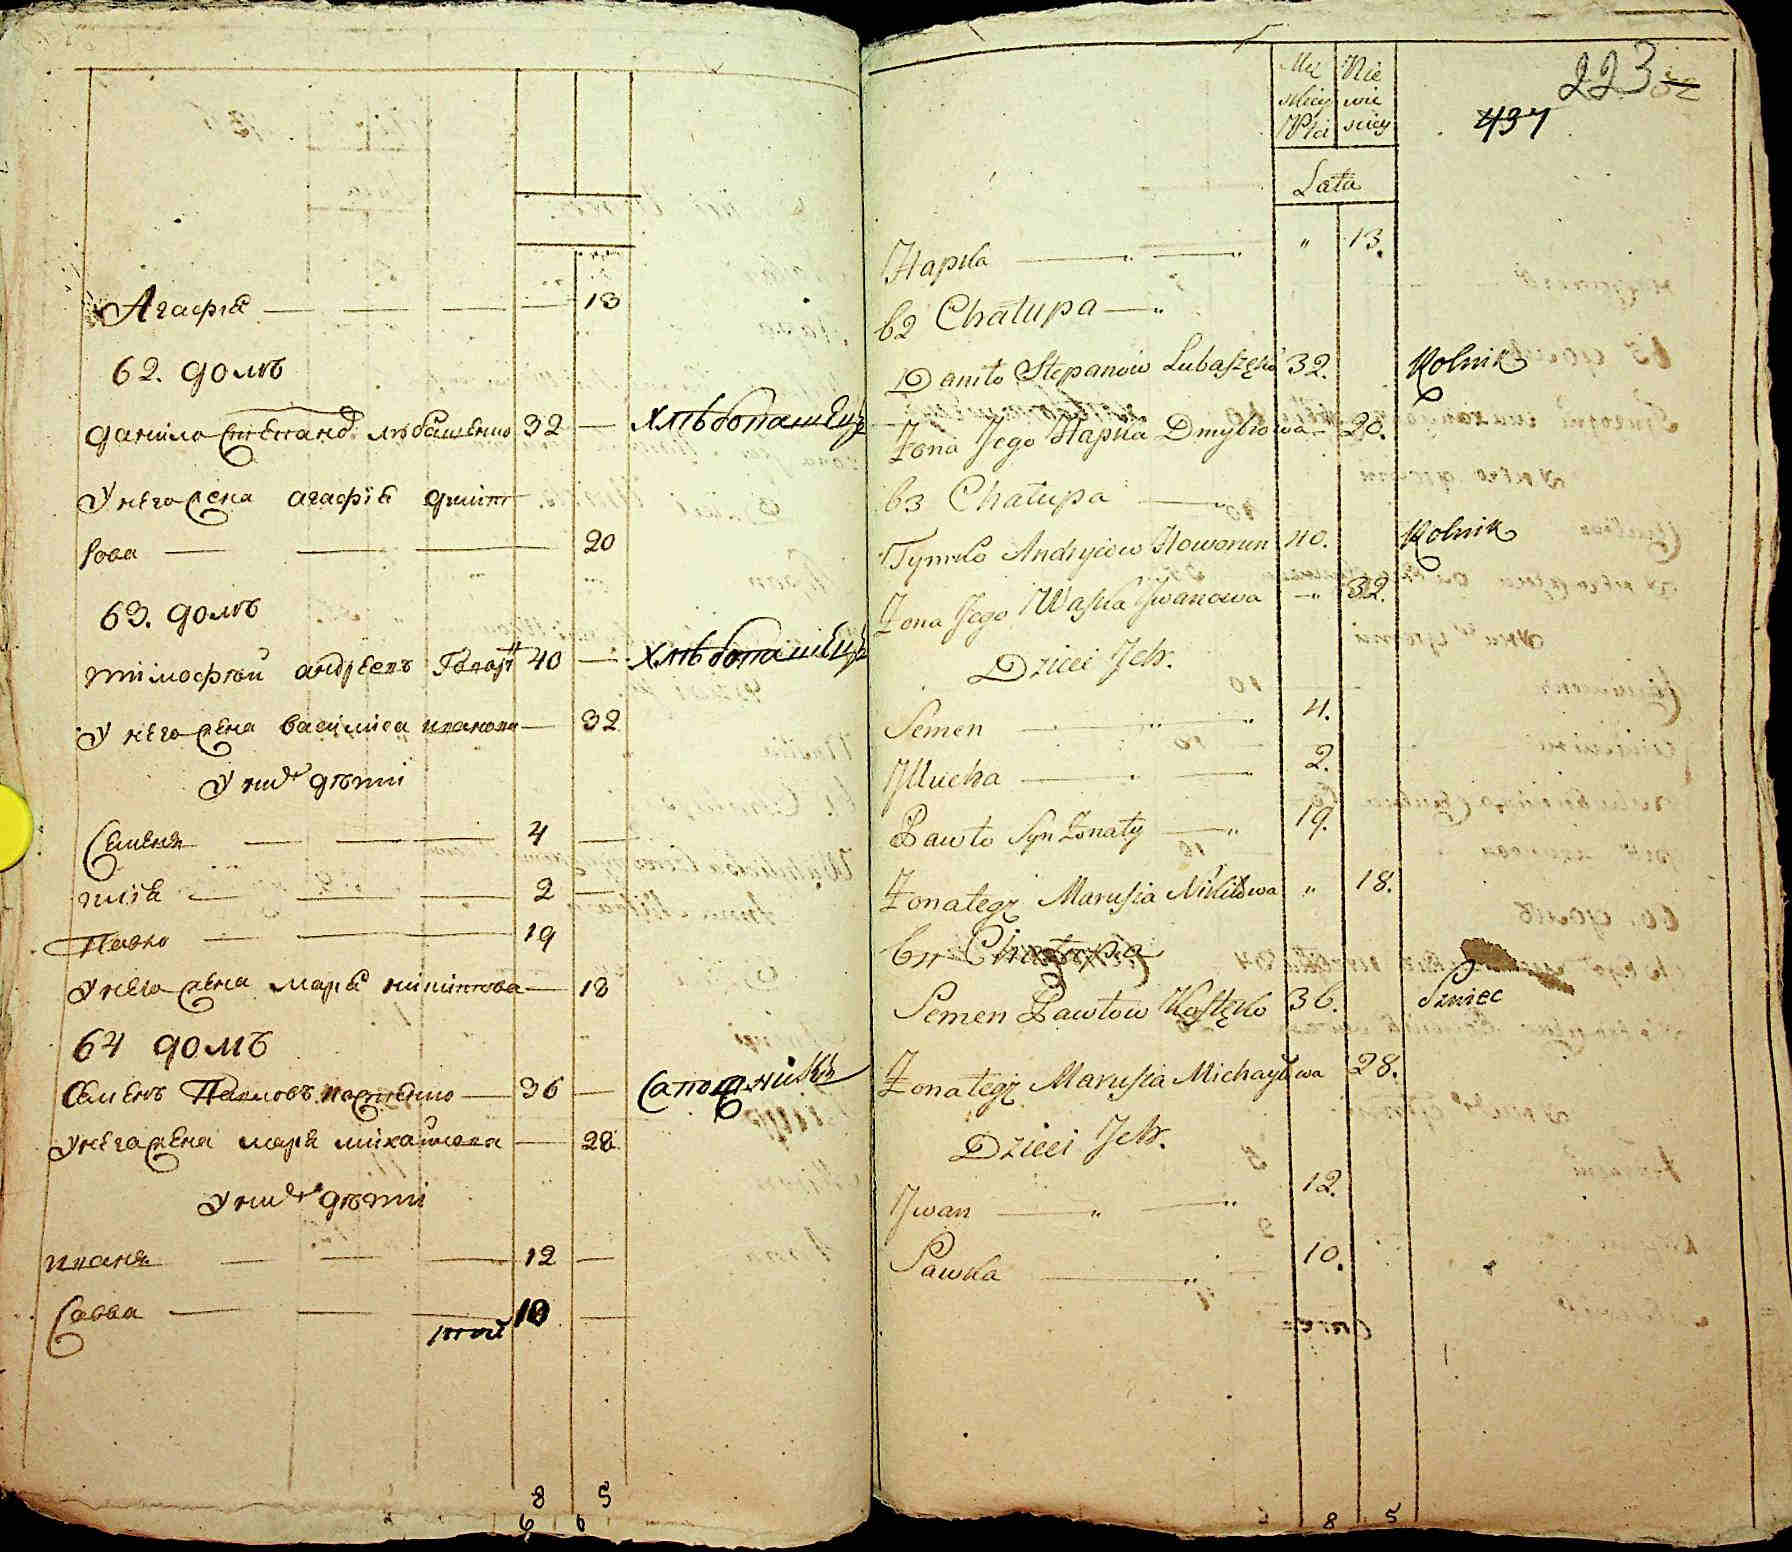 Агафiя — — — — 13
62. домъ
Данило Степановъ Любашенко 32 — хлѣбопашецъ
У него жена Агафiя Дмит
рова — — — 20
63. домъ
Тимофѣй Андреевъ 40 — хлѣбопашецъ
У него жена Василиса Иванова — 32
У них дѣти
Семенъ — — — 4 —
— — — 2 —
Павло — — 19
У него жена Марья Никитова — 18
64 домъ
Семенъ Павловъ Костенко — 36 — Сапожникъ
У него жена Марья Михайлова — 28
У них дѣти
Иванъ — — — 12 —
Савва — — — 10 —
8 5
6 6
223 52
437
Mę Nie
skiey wie
Płci sciey
Lata
Hapka — — " 13.
62 Chałupa — "
Daniło Stepanow Lubaszęko 32. Rolnik
Żona Jego Hapka Dmytrowa — 20.
63 Chałupa —
Tymko Andryiow Howorun 40. Rolnik
Żona Jego Waska Jwanowa — " 32.
Dzieci Jch.
Semen — " — " 4.
Jllucha — — 2.
Pawło Syn Żonaty — " 19.
Żonategͦ Marusia Nikitowa " 18.
64 Chałupa
Semen Pawłow Kostęko 36. Szwiec
Żonategͦ Marusia Michayłowa 28.
Dzieci Jch.
Jwan — " — " 12.
Sawka — " — 10.
8 5